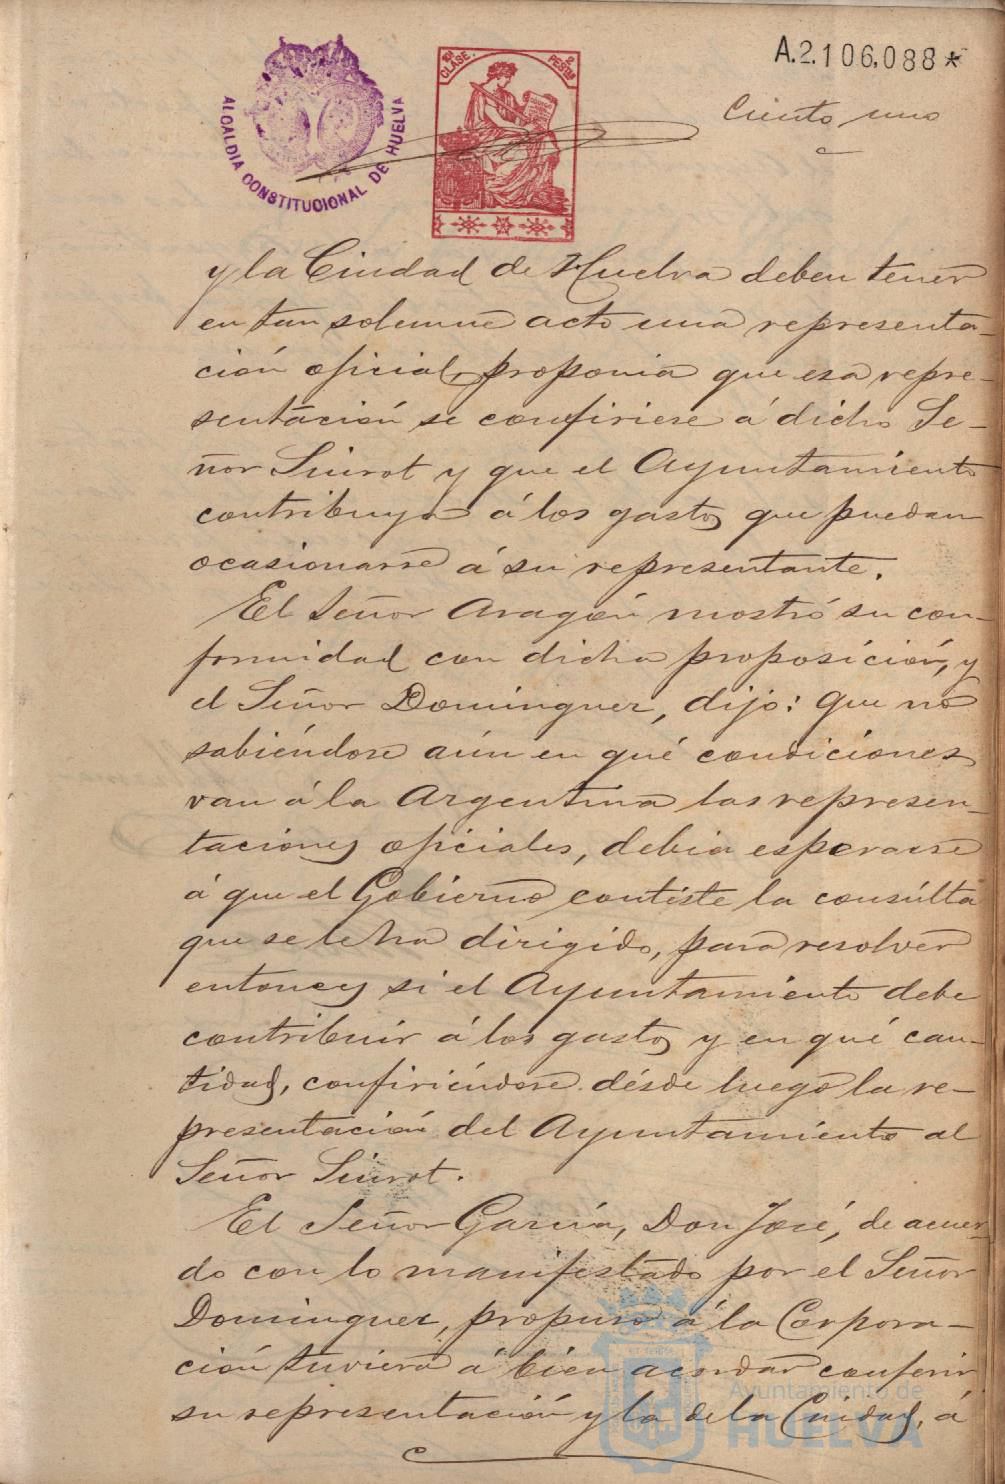 A.2.106,088*
ALCALDIA CONSTITUCIONAL DE HUELVA
10ª CLASE.
2 PESTAS
Ciento uno
y la Ciudad de Huelva deben tener
en tan solemne acto una representa-
ción oficial, proponia que esa repre-
sentación se confiriese á dicho Se-
ñor Siurot y que el Ayuntamiento
contribuya á los gastos que puedan
ocasionarse á su representante.
El Señor Aragón mostró su con-
formidad con dicha proposición, y
el Señor Dominguez, dijo: Que no
sabiéndose aún en qué condiciones
van á la Argentina las represen-
taciones oficiales, debia esperarse
á que el Gobierno contéste la consúlta
que se le ha dirigido, para resolver
entonces si el Ayuntamiento debe
contribuir á los gastos y en qué can-
tidad, confiriéndose désde luego la re-
presentación del Ayuntamiento al
Señor Siurot.
El Señor García, Don José, de acuer-
do con lo manifestado por el Señor
Dominguez, propuso á la Corpora-
ción tuviera á bien acordar conferir
su representación y la de la Ciudad, á
Ayuntamiento de
HUELVA